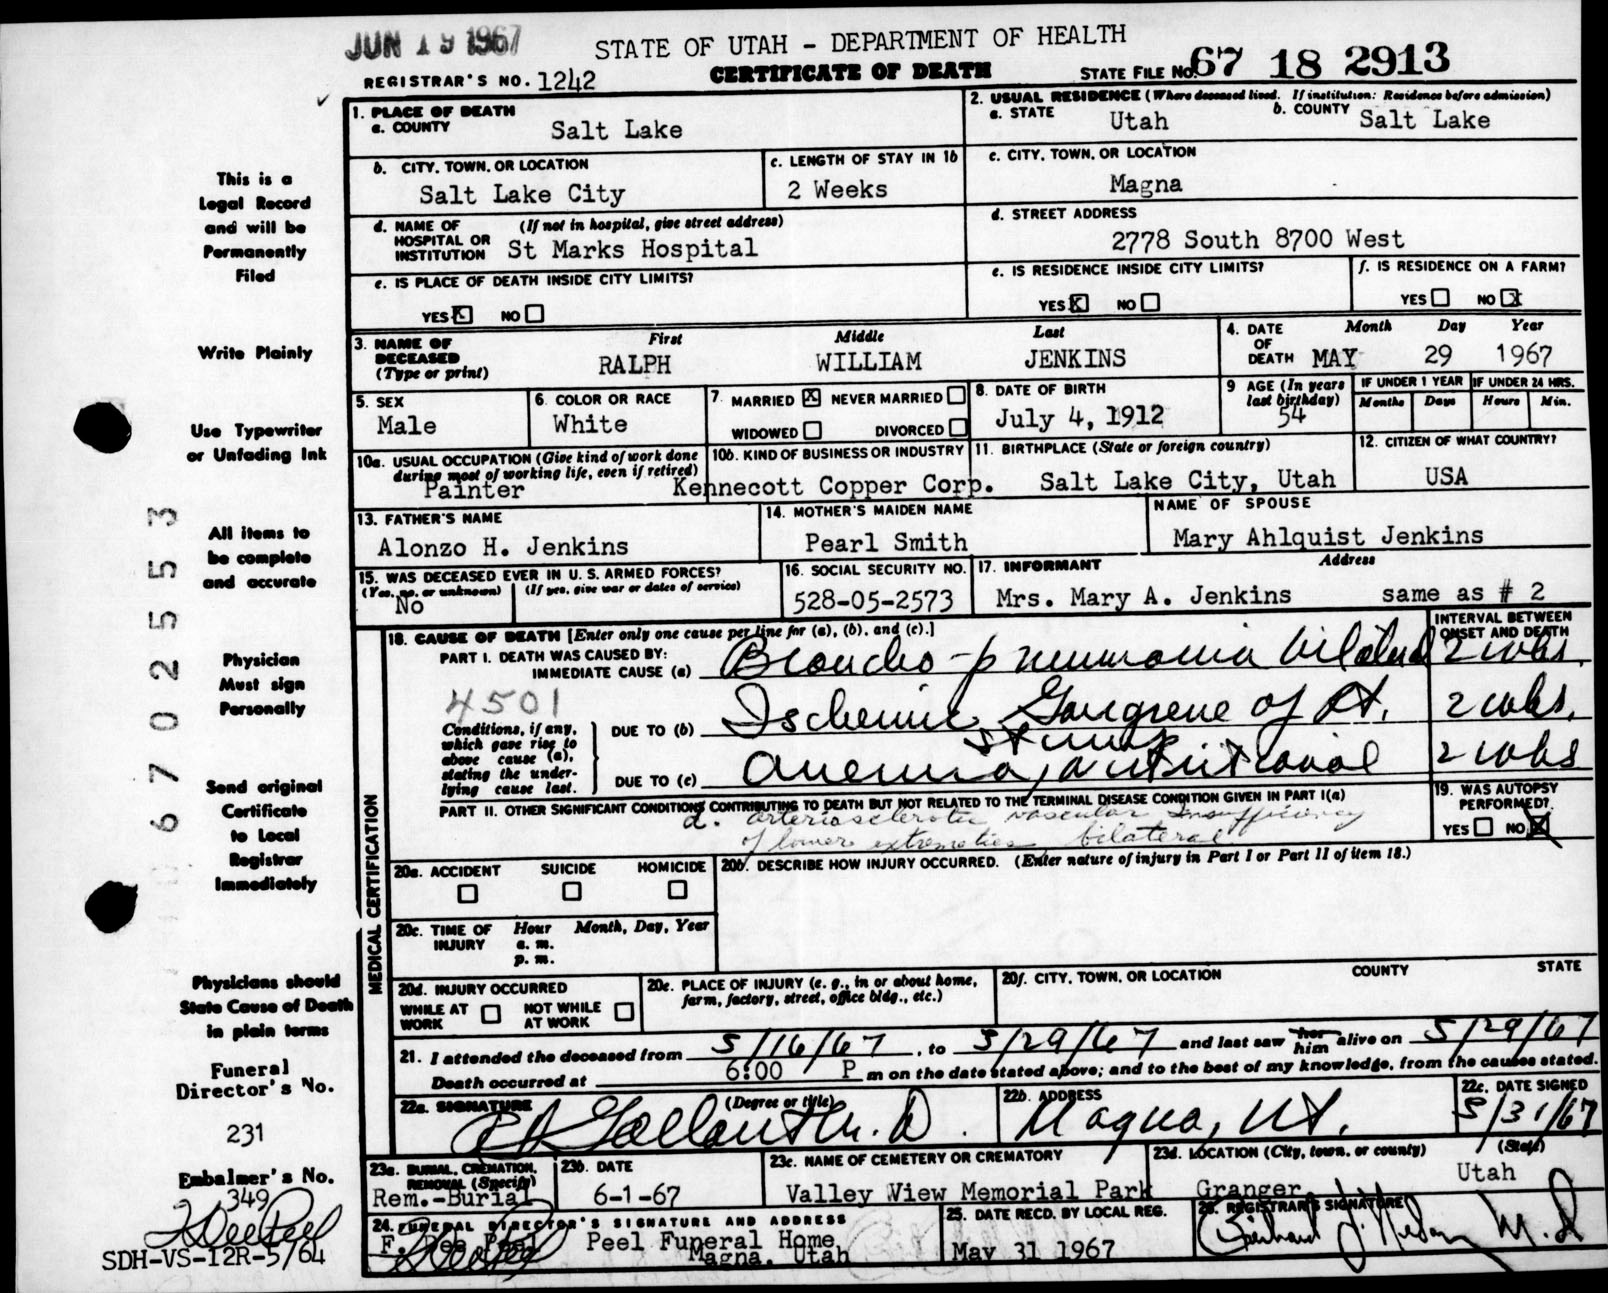 JUN 19 1967
STATE OF UTAH - DEPARTMENT OF HEALTH
CERTIFICATE OF DEATH
REGISTRAR'S NO. 1242
STATE FILE NO. 67 18 2913
1. PLACE OF DEATH
a. COUNTY Salt Lake
2. USUAL RESIDENCE (Where deceased lived. If institution: Residence before admission)
a. STATE Utah b. COUNTY Salt Lake
b. CITY, TOWN, OR LOCATION
Salt Lake City
c. LENGTH OF STAY IN 1b
2 Weeks
c. CITY, TOWN, OR LOCATION
Magna
d. NAME OF HOSPITAL OR INSTITUTION (If not in hospital, give street address)
St Marks Hospital
d. STREET ADDRESS
2778 South 8700 West
e. IS PLACE OF DEATH INSIDE CITY LIMITS?
YES X NO
e. IS RESIDENCE INSIDE CITY LIMITS?
YES X NO
f. IS RESIDENCE ON A FARM?
YES NO X
3. NAME OF DECEASED (Type or print)
First Middle Last
RALPH WILLIAM JENKINS
4. DATE OF DEATH Month Day Year
MAY 29 1967
5. SEX
Male
6. COLOR OR RACE
White
7. MARRIED X NEVER MARRIED
WIDOWED DIVORCED
8. DATE OF BIRTH
July 4, 1912
9 AGE (In years last birthday)
54
IF UNDER 1 YEAR IF UNDER 24 HRS.
Months Days Hours Min.
10a. USUAL OCCUPATION (Give kind of work done during most of working life, even if retired)
Painter
10b. KIND OF BUSINESS OR INDUSTRY
Kennecott Copper Corp.
11. BIRTHPLACE (State or foreign country)
Salt Lake City, Utah
12. CITIZEN OF WHAT COUNTRY?
USA
13. FATHER'S NAME
Alonzo H. Jenkins
14. MOTHER'S MAIDEN NAME
Pearl Smith
NAME OF SPOUSE
Mary Ahlquist Jenkins
15. WAS DECEASED EVER IN U. S. ARMED FORCES?
(Yes, no, or unknown) (If yes, give war or dates of service)
No
16. SOCIAL SECURITY NO.
528-05-2573
17. INFORMANT Address
Mrs. Mary A. Jenkins same as # 2
MEDICAL CERTIFICATION
18. CAUSE OF DEATH [Enter only one cause per line for (a), (b), and (c).]
INTERVAL BETWEEN ONSET AND DEATH
PART I. DEATH WAS CAUSED BY:
IMMEDIATE CAUSE (a) Broncho-pneumonia bilateral 2 wks.
4501
Conditions, if any, which gave rise to above cause (a), stating the under-lying cause last.
DUE TO (b) Ischemic Gangrene of rt. stump 2 wks.
DUE TO (c) anemia, nutritional 2 wks
PART II. OTHER SIGNIFICANT CONDITIONS CONTRIBUTING TO DEATH BUT NOT RELATED TO THE TERMINAL DISEASE CONDITION GIVEN IN PART I(a)
d. arteriosclerotic vascular insufficiency
of lower extremities bilateral
19. WAS AUTOPSY PERFORMED?
YES NO X
20a. ACCIDENT SUICIDE HOMICIDE
20b. DESCRIBE HOW INJURY OCCURRED. (Enter nature of injury in Part I or Part II of item 18.)
20c. TIME OF INJURY Hour Month, Day, Year
a. m.
p. m.
20d. INJURY OCCURRED
WHILE AT WORK NOT WHILE AT WORK
20e. PLACE OF INJURY (e. g., in or about home, farm, factory, street, office bldg., etc.)
20f. CITY, TOWN, OR LOCATION COUNTY STATE
21. I attended the deceased from 5/16/67, to 5/29/67 and last saw her him alive on 5/29/67
Death occurred at 6:00 P m on the date stated above; and to the best of my knowledge, from the causes stated.
22a. SIGNATURE (Degree or title)
M. D.
22b. ADDRESS
Magna, Ut.
22c. DATE SIGNED
5/31/67
23a. BURIAL, CREMATION, REMOVAL (Specify)
Rem.-Burial
23b. DATE
6-1-67
23c. NAME OF CEMETERY OR CREMATORY
Valley View Memorial Park
23d. LOCATION (City, town, or county) (State)
Granger Utah
24. FUNERAL DIRECTOR'S SIGNATURE AND ADDRESS
F. Dee Peel Peel Funeral Home
Magna, Utah
25. DATE RECD. BY LOCAL REG.
May 31 1967
26. REGISTRAR'S SIGNATURE
M. D
This is a
Legal Record
and will be
Permanently
Filed
Write Plainly
Use Typewriter
or Unfading Ink
All items to
be complete
and accurate
Physician
Must sign
Personally
Send original
Certificate
to Local
Registrar
Immediately
Physicians should
State Cause of Death
in plain terms
Funeral
Director's No.
231
Embalmer's No.
349
F Dee Peel
SDH-VS-12R-5/64
67 02553